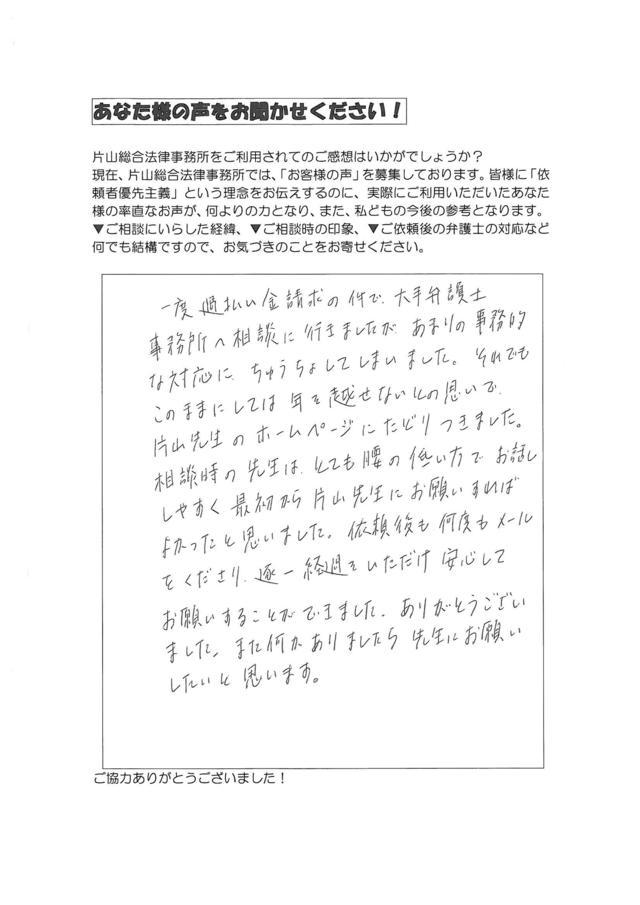 あなた様の声をお聞かせください！
片山総合法律事務所をご利用されてのご感想はいかがでしょうか？
現在、片山総合法律事務所では、「お客様の声」を募集しております。皆様に「依
頼者優先主義」という理念をお伝えするのに、実際にご利用いただいたあなた
様の率直なお声が、何よりの力となり、また、私どもの今後の参考となります。
▼ご相談にいらした経緯、▼ご相談時の印象、▼ご依頼後の弁護士の対応など
何でも結構ですので、お気づきのことをお寄せください。
一度過払い金請求の件で、大手弁護士
事務所へ相談に行きましたが、あまりの事務的
な対応に、ちゅうちょしてしまいました。それでも
このままにしては年を越せないとの思いで、
片山先生のホームページにたどりつきました。
相談時の先生は、とても腰の低い方でお話し
しやすく最初から片山先生にお願いすれば
よかったと思いました。依頼後も何度もメール
をくださり、逐一経過をいただけ安心して
お願いすることができました。ありがとうござい
ました。また何かありましたら先生にお願い
したいと思います。
ご協力ありがとうございました！